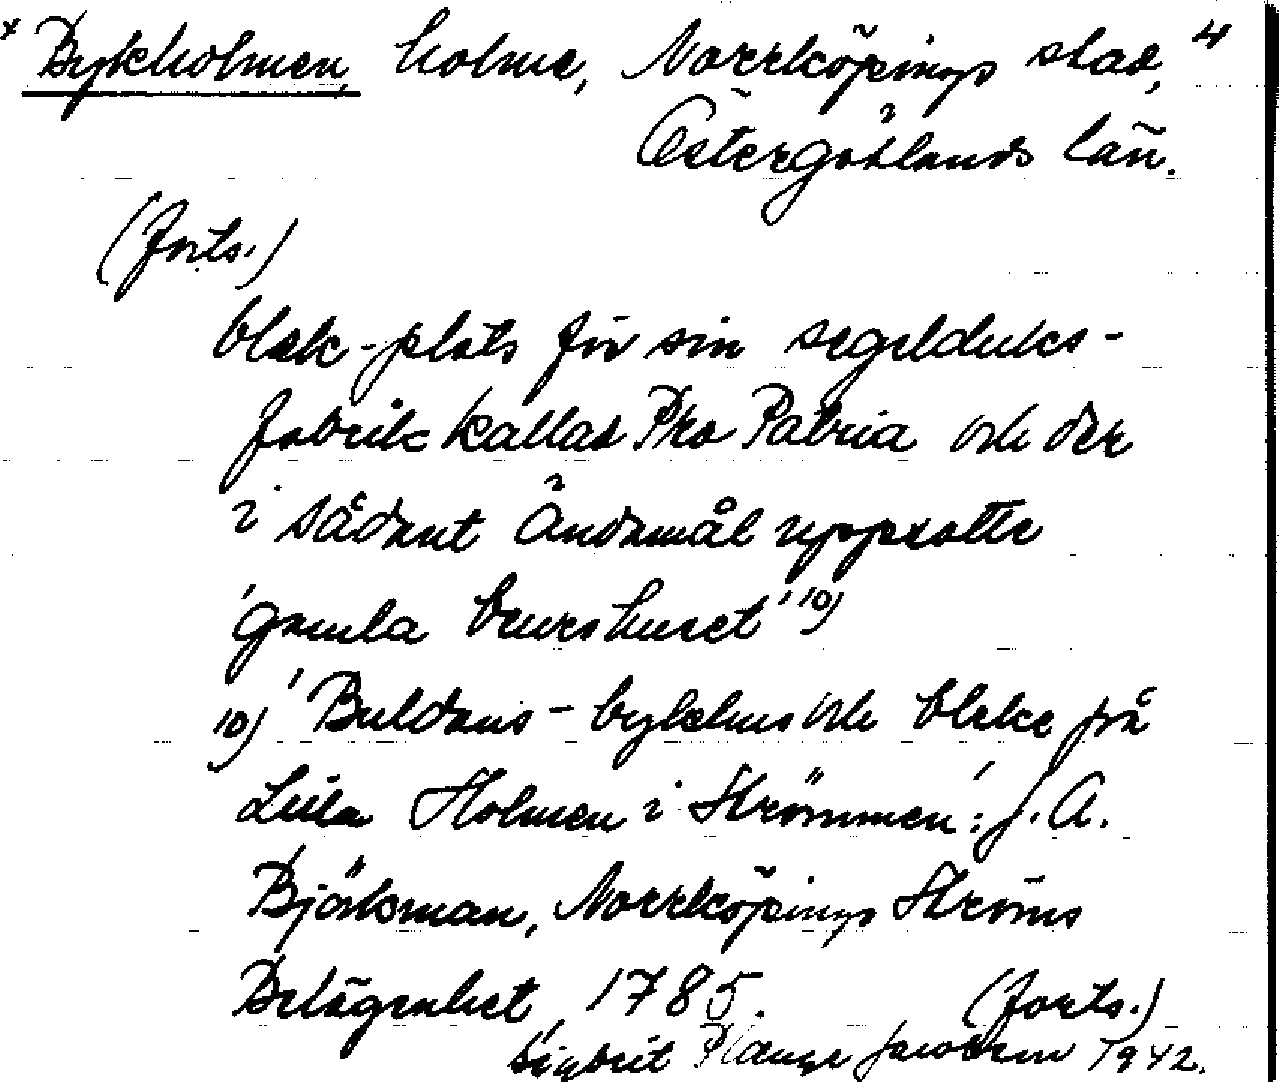 × Bykholmen, holme, Norrköpings stad, 4
Östergötlands län.
(forts.)
blek-plats för sin segelduks-
fabrik kallad Pro Patria och der
i sådant ändamål uppsatte
'gamla brunshuset' 10)
10) 'Buldans-bykhus och bleke på
Lilla Holmen i Strömmen': J. A.
Björkman, Norrköpings Ströms
Belägenhet, 1785. (forts.)
Sigbrit Plænge Jacobson 1942.